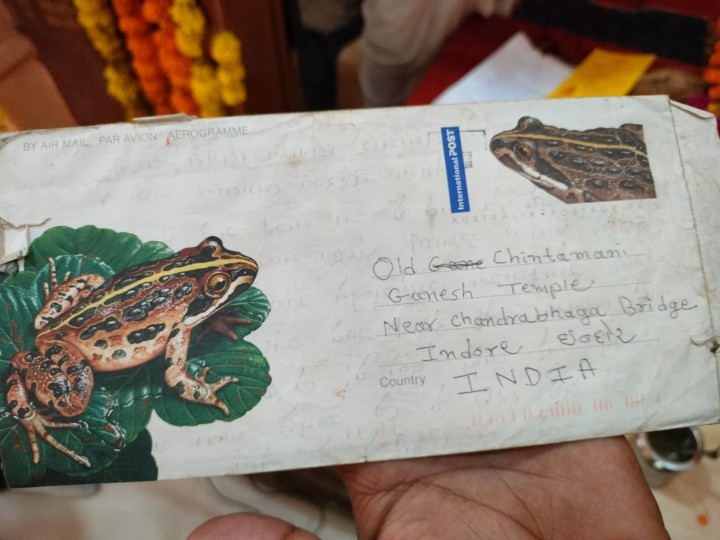 BY AIR MAIL PAR AVION AEROGRAMME
International POST
AUSTRALIA POSTAGE PAID
Old Chintamani
Ganesh Temple
Near Chandrabhaga Bridge
Indore
Country INDIA